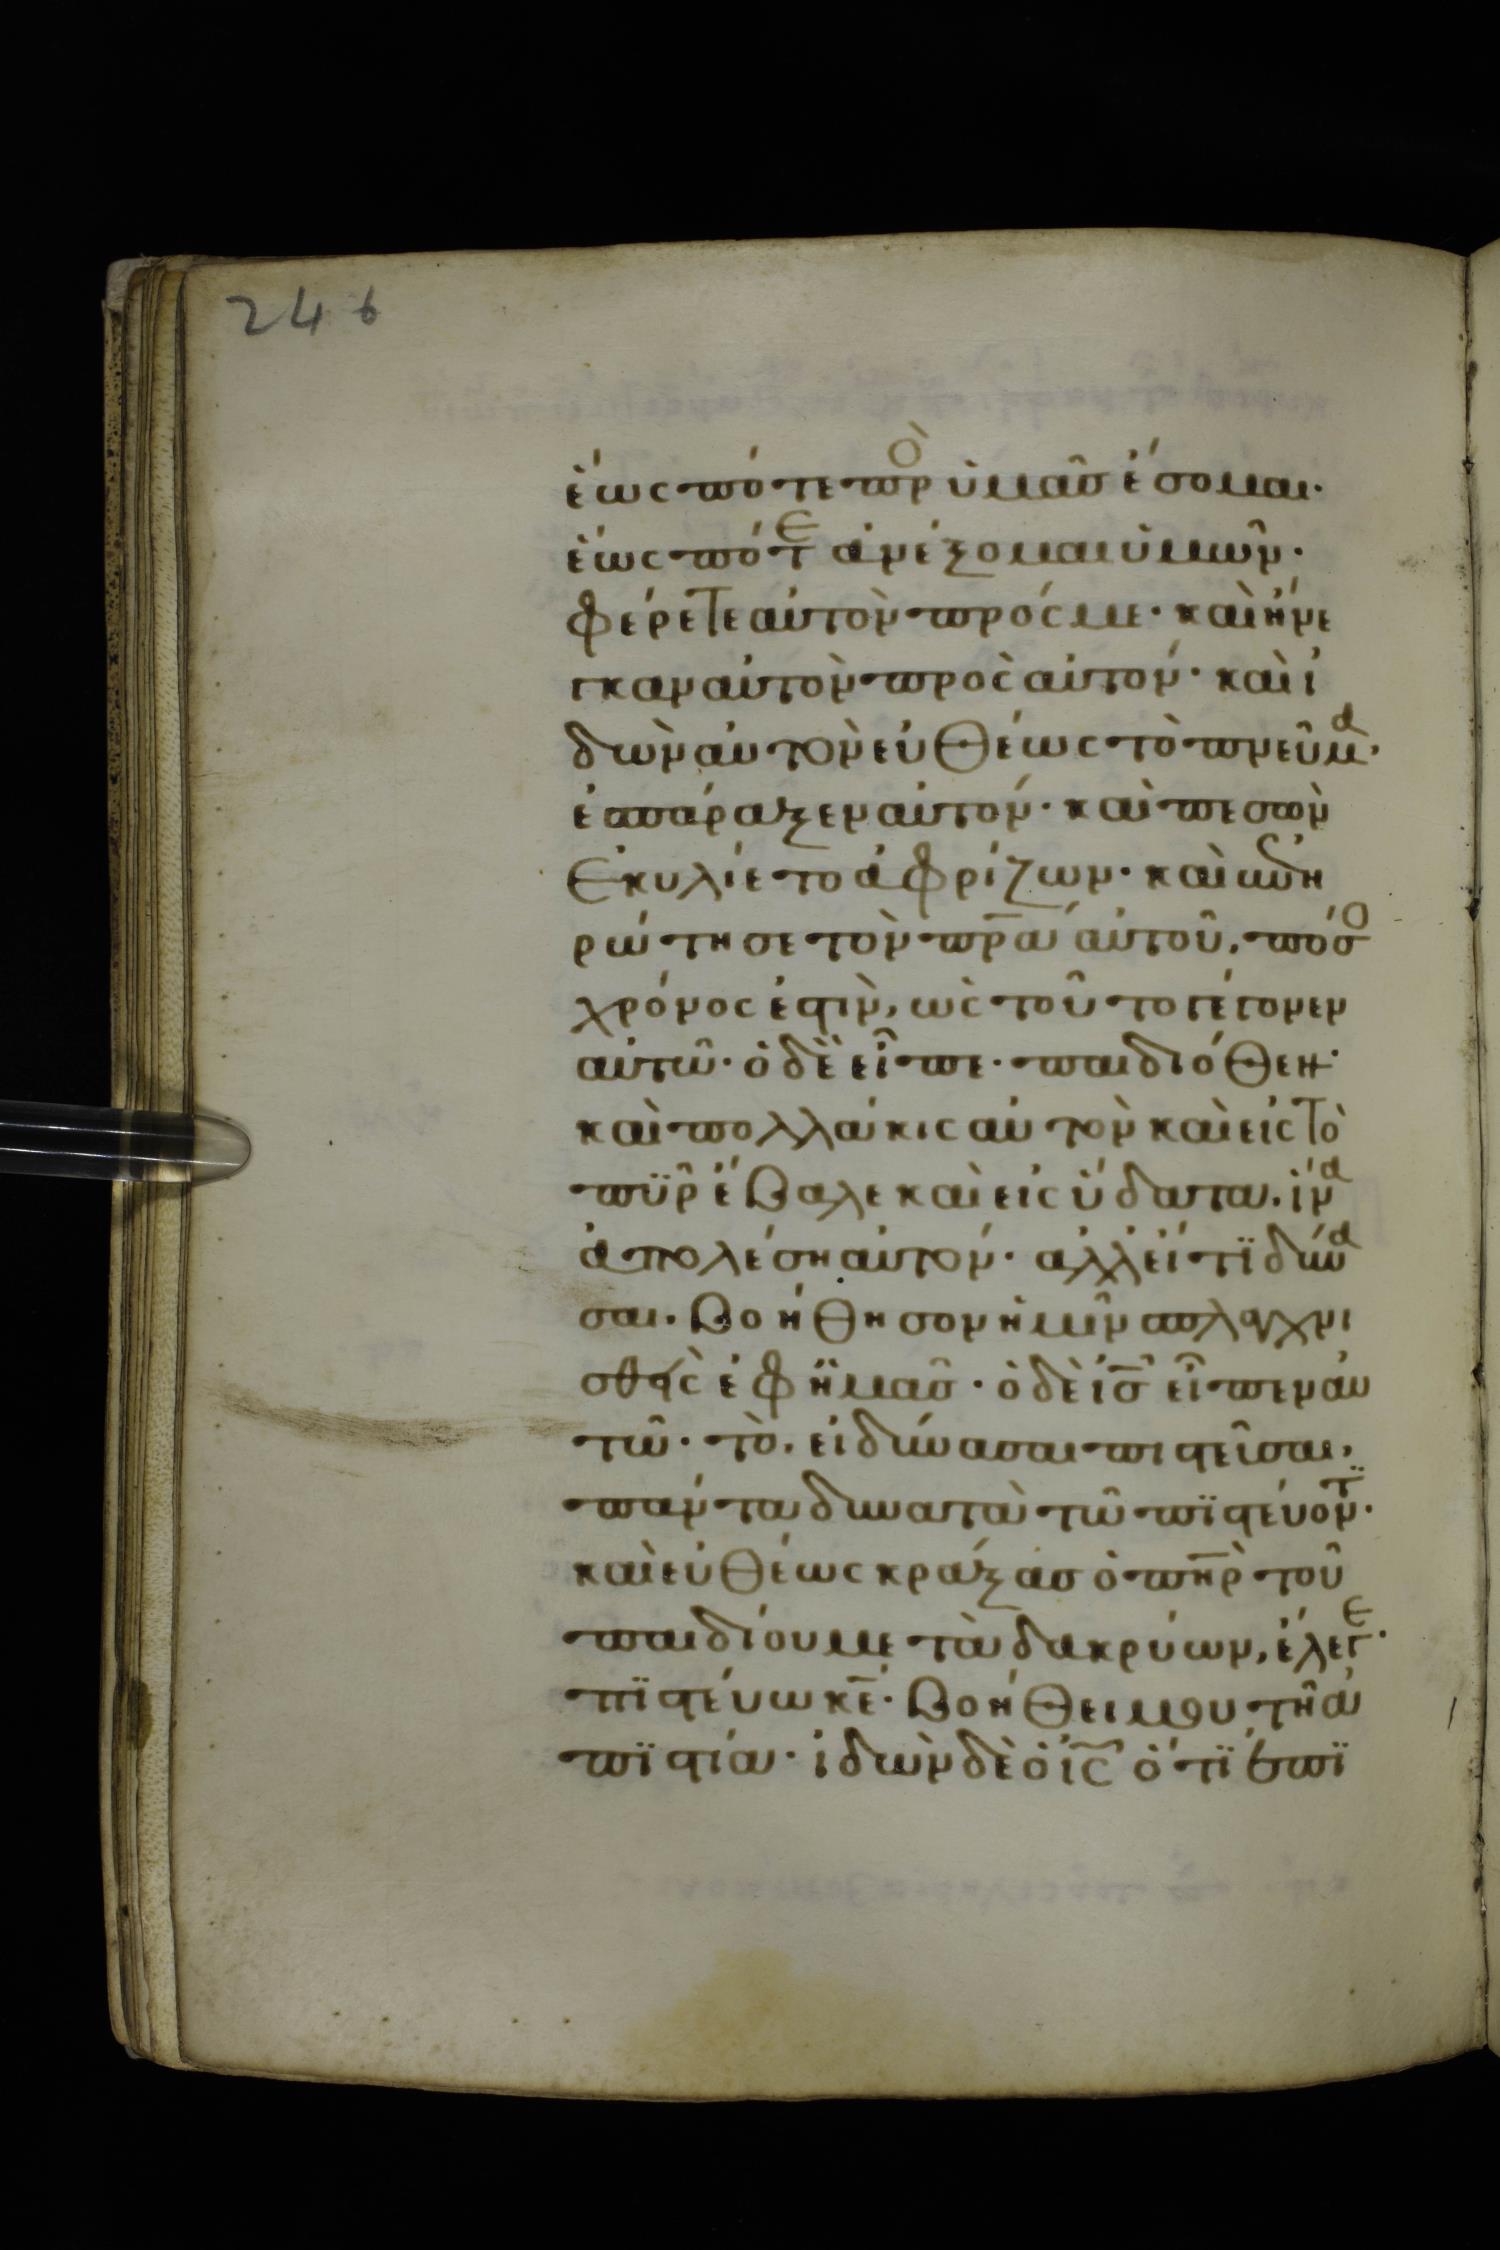 246
ἕως πότε πρὸ ὑμᾶσ ἔσομαι·
ἕως πότε ἀνέξομαι ὑμῶν·
φέρετε αὐτὸν πρός με· καὶ ἤνε
γκαν αὐτὸν πρὸς αὐτόν· καὶ ἰ
δὼν αὐτὸν εὐθέως τὸ πνεῦμα,
ἐσπάραξεν αὐτόν· καὶ πεσὼν
ἐκυλίετο ἀφρίζων· καὶ ἐπη
ρώτησε τὸν πρ̅α αὐτοῦ, πόσο
χρόνος ἐστιν, ὡς τοῦτο γέγονεν
αὐτῶ· ὁ δὲ εἶπε· παιδιόθεν·
καὶ πολλάκις αὐτὸν καὶ εἰς τὸ
πῦρ ἔβαλε καὶ εἰς ὕδατα, ἵνα
ἀπολέση αὐτόν· ἀλλ εἴ τϊ δύνα
σαι, βοήθησον ἡμῖν σπλαγχνι
σθεὶς ἐφ ἡμᾶσ· ὁ δὲ ι̅σ̅ εἶπεν αὐ
τῶ· τὸ, εἰ δύνασαι πιστεῦσαι,
πάντα δυνατὰ τῶ πϊστεύοντϊ·
καὶ εὐθέως κράξασ ὁ πη̅ρ τοῦ
παιδίου μετὰ δακρύων, ἔλεγε·
πϊστεύω κ̅ε̅· βοήθει μου τῆ ἀ
πϊστία· ἰδὼν δὲ ὁ ι̅ς̅ ὅτϊ ἐπϊ